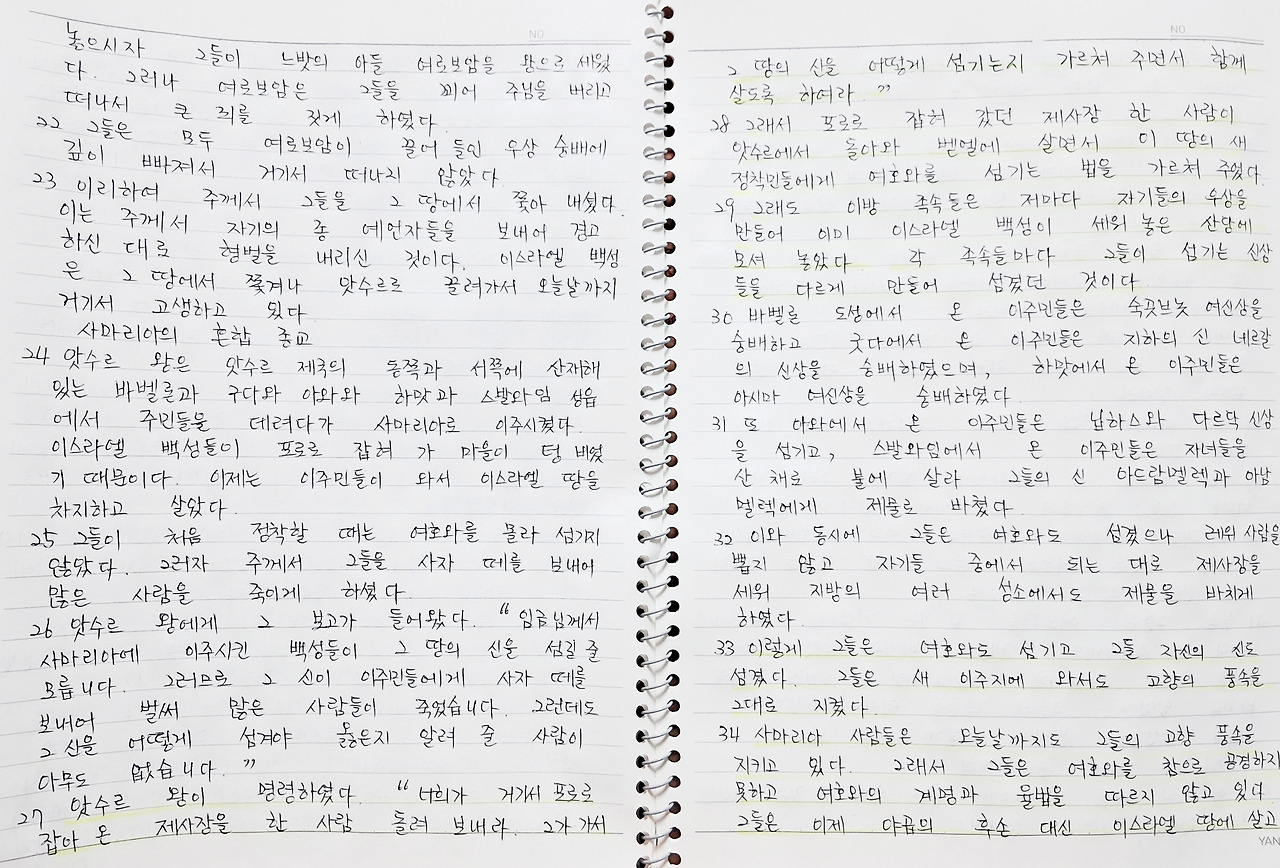 NO
놓으시자 그들이 느밧의 아들 여로보암을 왕으로 세웠
다. 그러나 여로보암은 그들을 꾀어 주님을 버리고
떠나서 큰 죄를 짓게 하였다.
22 그들은 모두 여로보암이 끌어 들인 우상 숭배에
깊이 빠져서 거기서 떠나지 않았다.
23 이리하여 주께서 그들을 그 땅에서 쫓아 내셨다.
이는 주께서 자기의 종 예언자들을 보내어 경고
하신 대로 형벌을 내리신 것이다. 이스라엘 백성
은 그 땅에서 쫓겨나 앗수르로 끌려가서 오늘날까지
거기서 고생하고 있다
사마리아의 혼합 종교
24 앗수르 왕은 앗수르 제국의 동쪽과 서쪽에 산재해
있는 바벨론과 구다와 아와와 하맛과 스발와임 성읍
에서 주민들을 데려다가 사마리아로 이주시켰다.
이스라엘 백성들이 포로로 잡혀 가 마을이 텅 비었
기 때문이다. 이제는 이주민들이 와서 이스라엘 땅을
차지하고 살았다.
25 그들이 처음 정착할 때는 여호와를 몰라 섬기지
않았다. 그러자 주께서 그들을 사자 떼를 보내어
많은 사람을 죽이게 하셨다.
26 앗수르 왕에게 그 보고가 들어왔다. “임금님께서
사마리아에 이주시킨 백성들이 그 땅의 신을 섬길 줄
모릅니다. 그러므로 그 신이 이주민들에게 사자 떼를
보내어 벌써 많은 사람들이 죽었습니다. 그런데도
그 신을 어떻게 섬겨야 옳은지 알려 줄 사람이
아무도 없습니다.”
27 앗수르 왕이 명령하였다. “너희가 거기서 포로로
잡아 온 제사장을 한 사람 돌려 보내라. 그가 가서
NO
그 땅의 신을 어떻게 섬기는지 가르쳐 주면서 함께
살도록 하여라.”
28 그래서 포로로 잡혀 갔던 제사장 한 사람이
앗수르에서 돌아와 벧엘에 살면서 이 땅의 새
정착민들에게 여호와를 섬기는 법을 가르쳐 주었다.
29 그래도 이방 족속들은 저마다 자기들의 우상을
만들어 이미 이스라엘 백성이 세워 놓은 산당에
모셔 놓았다. 각 족속들마다 그들이 섬기는 신상
들을 다르게 만들어 섬겼던 것이다.
30 바벨론 도성에서 온 이주민들은 숙곳브놋 여신상을
숭배하고 굿다에서 온 이주민들은 지하의 신 네르갈
의 신상을 숭배하였으며, 하맛에서 온 이주민들은
아시마 여신상을 숭배하였다.
31 또 아와에서 온 이주민들은 닙하스와 다르닥 신상
을 섬기고, 스발와임에서 온 이주민들은 자녀들을
산 채로 불에 살라 그들의 신 아드람멜렉과 아남
멜렉에게 제물로 바쳤다.
32 이와 동시에 그들은 여호와도 섬겼으나 레위 사람을
뽑지 않고 자기들 중에서 되는 대로 제사장을
세워 지방의 여러 성소에서도 제물을 바치게
하였다.
33 이렇게 그들은 여호와도 섬기고 그들 자신의 신도
섬겼다. 그들은 새 이주지에 와서도 고향의 풍속을
그대로 지켰다.
34 사마리아 사람들은 오늘날까지도 그들의 고향 풍속을
지키고 있다. 그래서 그들은 여호와를 참으로 공경하지
못하고 여호와의 계명과 율법을 따르지 않고 있다.
그들은 이제 야곱의 후손 대신 이스라엘 땅에 살고
YAN